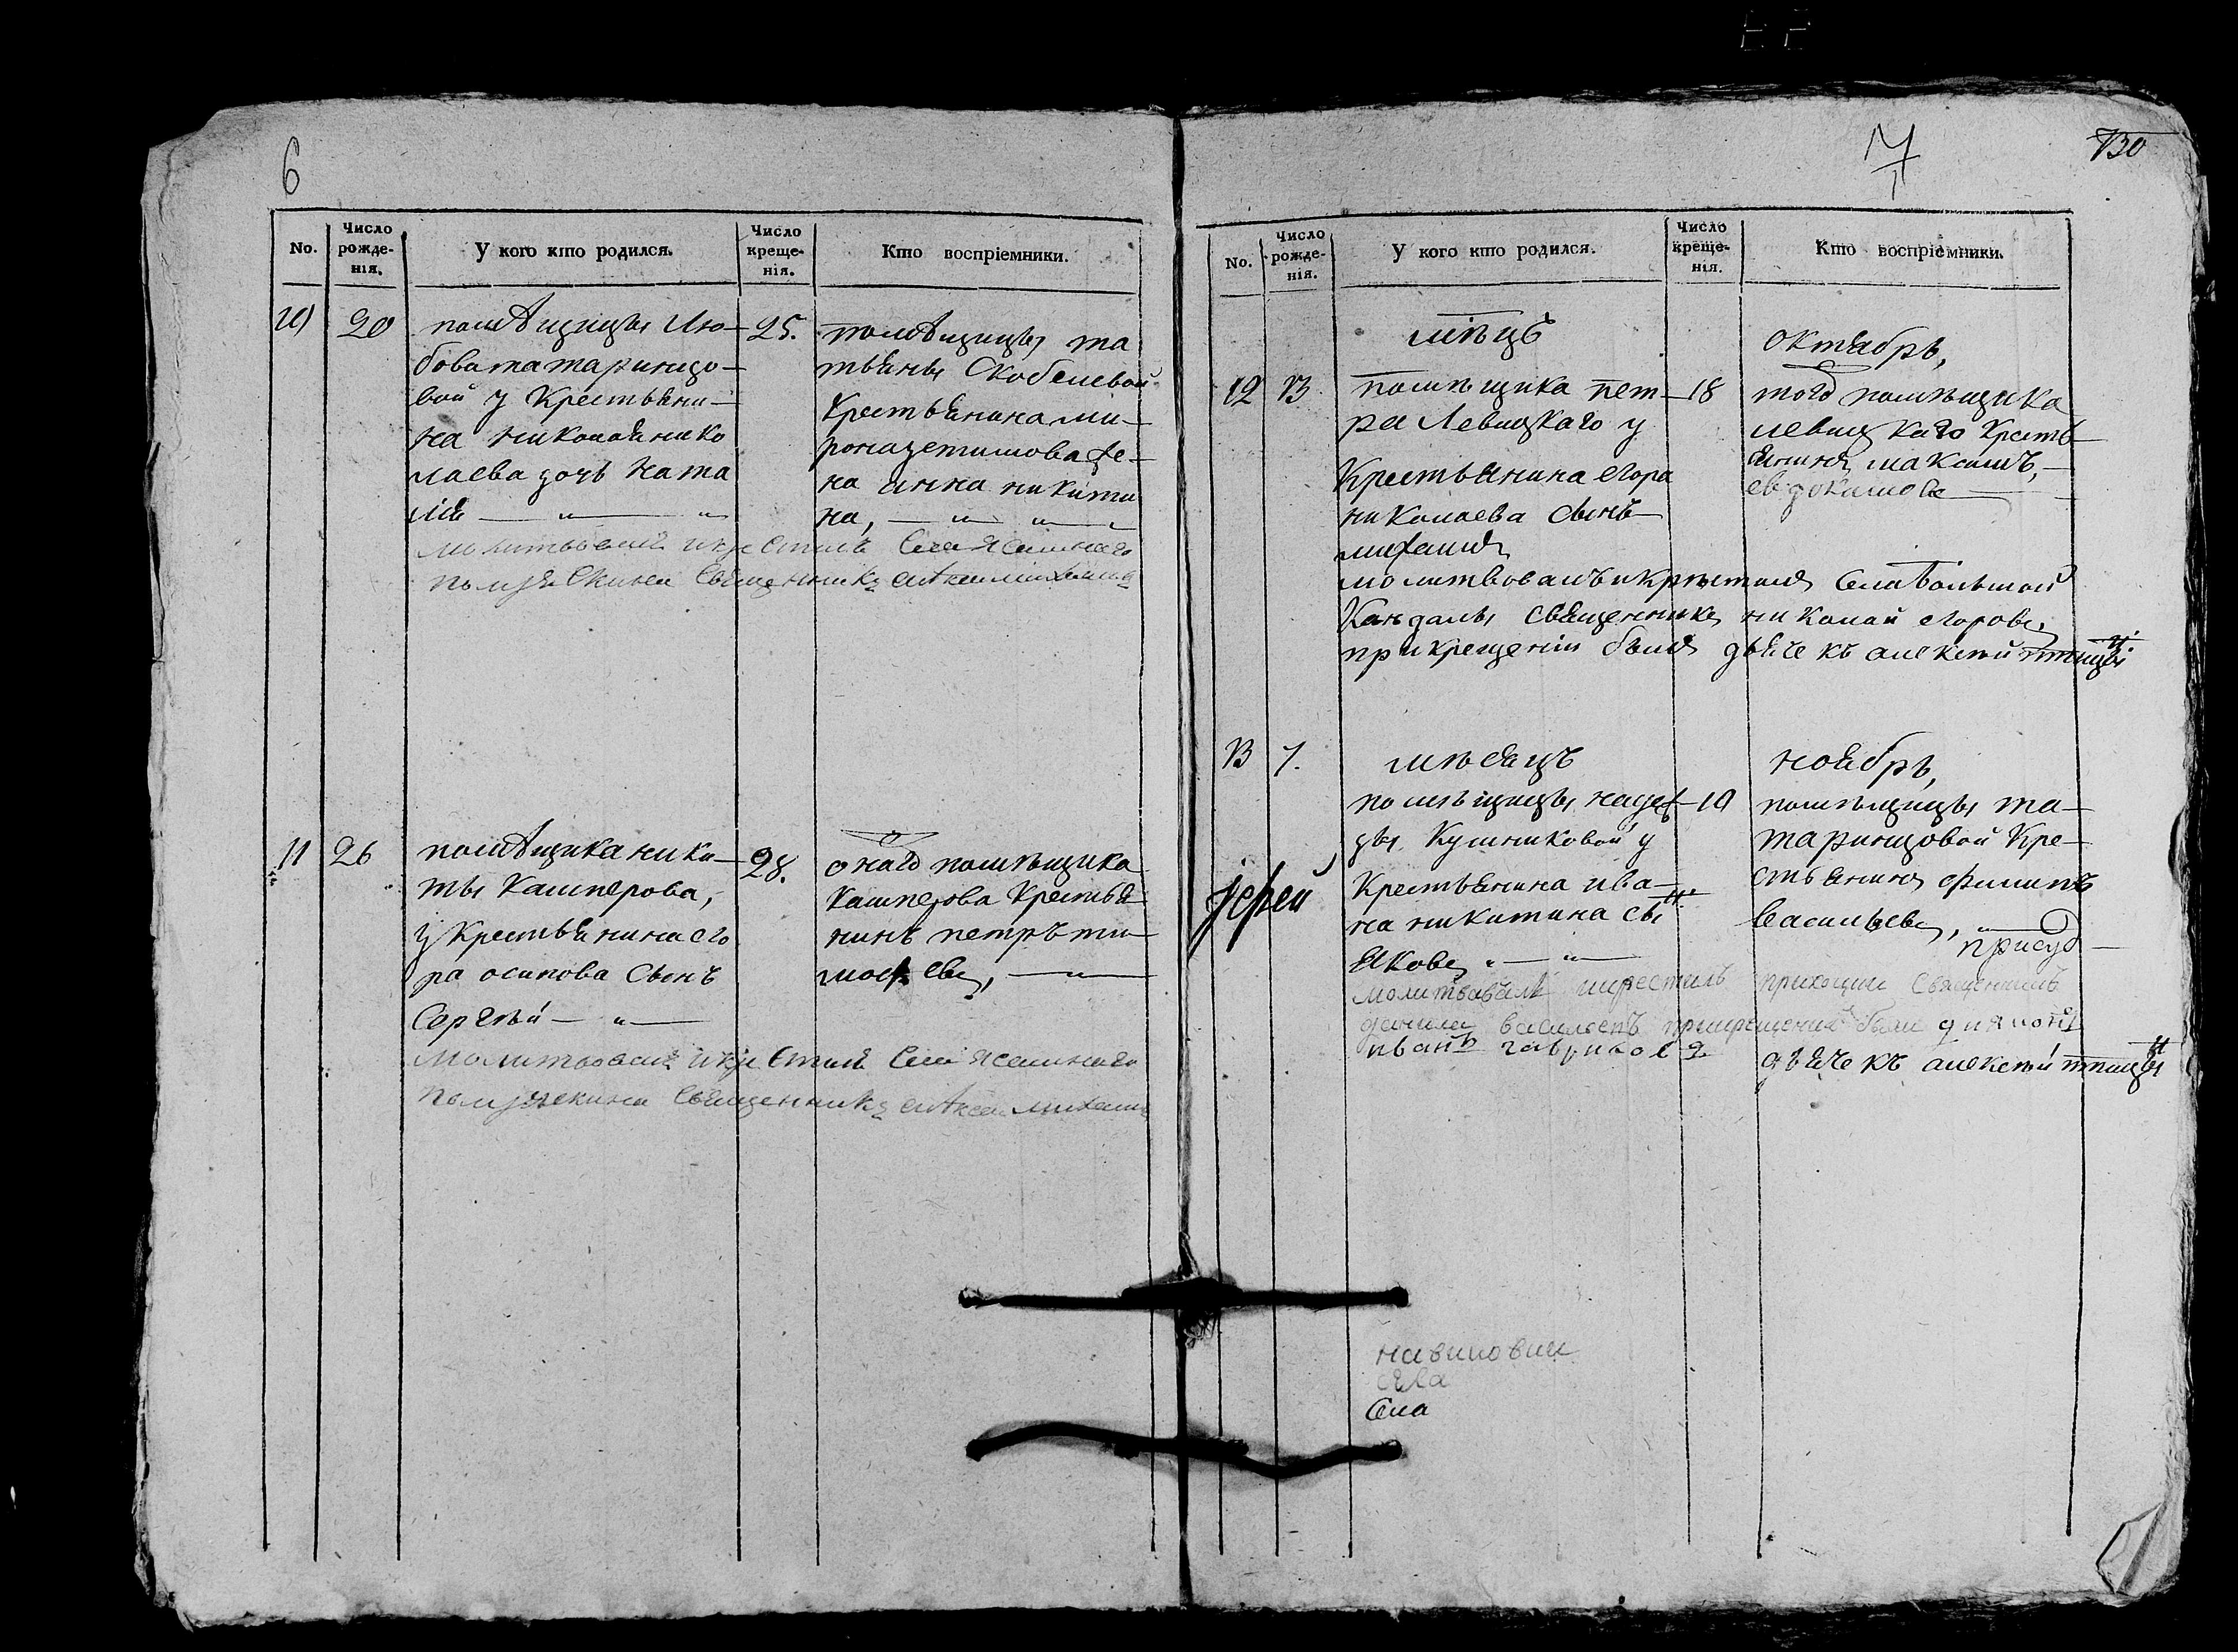 6
No.
Число рожде-нія.
У кого кто родился.
Число креще-нія.
Кто воспріемники.
10
20
помѣщицы Лю-
бова татаринцо-
вой у крестьяни-
на николая нико
лаева дочь ната
лія — „ — „
25.
помѣщицы та
тьяны Скобелевой
крестьянина ми-
рона
на анна никити
на, — „ „ —
молитвовалъ и крестилъ села
священникъ
11
26
помѣщика ники-
ты Кашперова,
у крестьянина его
ра осипова сынъ
Сергѣй — „ —
28.
онаго помѣщика
Кашперова крестья-
нинъ петръ ти-
мофѣевъ, — „ —
молитвовалъ и крестилъ села
священникъ
7
130
No.
Число рожде-нія.
У кого кто родился.
Число креще-нія.
Кто воспріемники.
мѣцъ
октябрь,
12
13
помѣщика пет-
ра Левицкаго у
крестьянина егора
николаева сынъ
михаилъ
18
того помѣщика
левицкаго кресть-
янинъ максимъ,
евдокимовъ —
молитвовалъ и крѣстилъ села большой
Кандалы священникъ николай егоровъ,
при крещеніи былъ дьячекъ алексѣй птицы
н
13
7.
мѣсяцъ
ноябрь,
помѣщицы надеж-
ды Куликовой у
крестьянина ива-
на никитина сы
н
яковъ „ — „ —
10
помѣщицы та-
таринцовой кре-
стьянинъ филипъ
васильевъ, „ —
присуд —
іерей
молитвавалъ икрестилъ приходции священникъ
данила васильевъ прикрещении были дияконъ
иванъ гавриловъ
дьячекъ алексѣй птицы
н
села